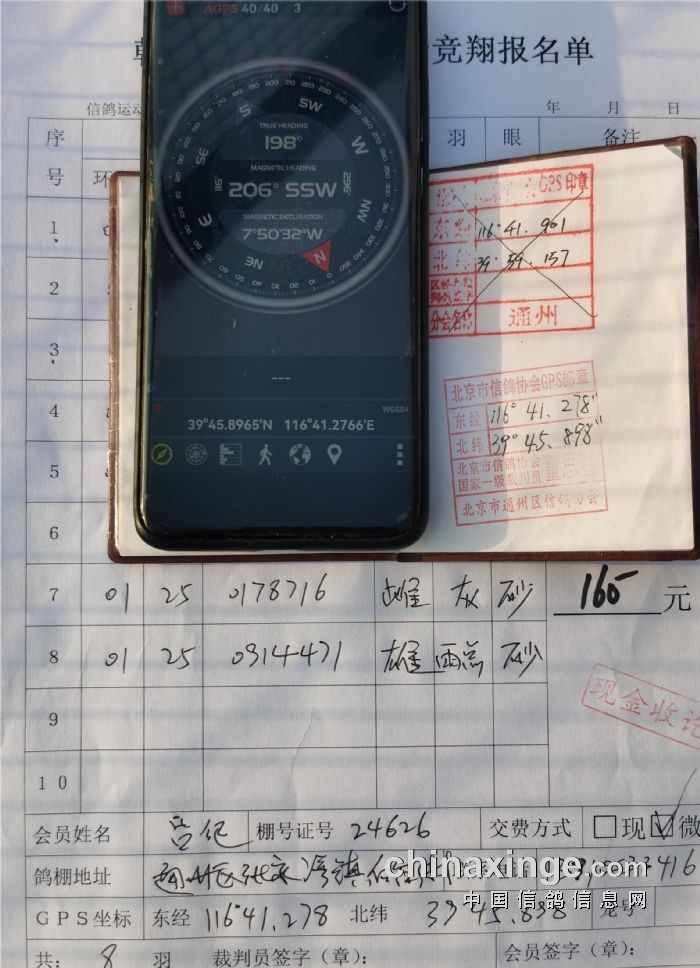 AGPS 40/40 3
竞翔报名单
信鸽运动
年 月 日
序号
羽 眼 备注
SE S SW W NW N NE E
TRUE HEADING
198°
MAGNETIC HEADING
116° 206° SSW 296°
MAGNETIC DECLINATION
7°50'32"W
---
WGS84
39°45.8965'N 116°41.2766'E
GPS印章
东经 116°41.901
北纬 39°59.157
分会名称 通州
北京市信鸽协会GPS邮章
东经 116° 41. 278"
北纬 39° 45. 898"
北京市信鸽协会
国家一级裁判员
北京市通州区信鸽协会
1
2
3
4
5
6
7 01 25 0178716 雌 灰 砂 160元
8 01 25 0314471 雄 雨点 砂
9
10
现金收讫
会员姓名 棚号证号 24626 交费方式 □现 ☑微
鸽棚地址 通州区张家湾镇
GPS坐标 东经 116°41.278 北纬 39°45.898
共: 8 羽 裁判员签字(章): 会员签字(章):
chinaxinge.com
中国信鸽信息网